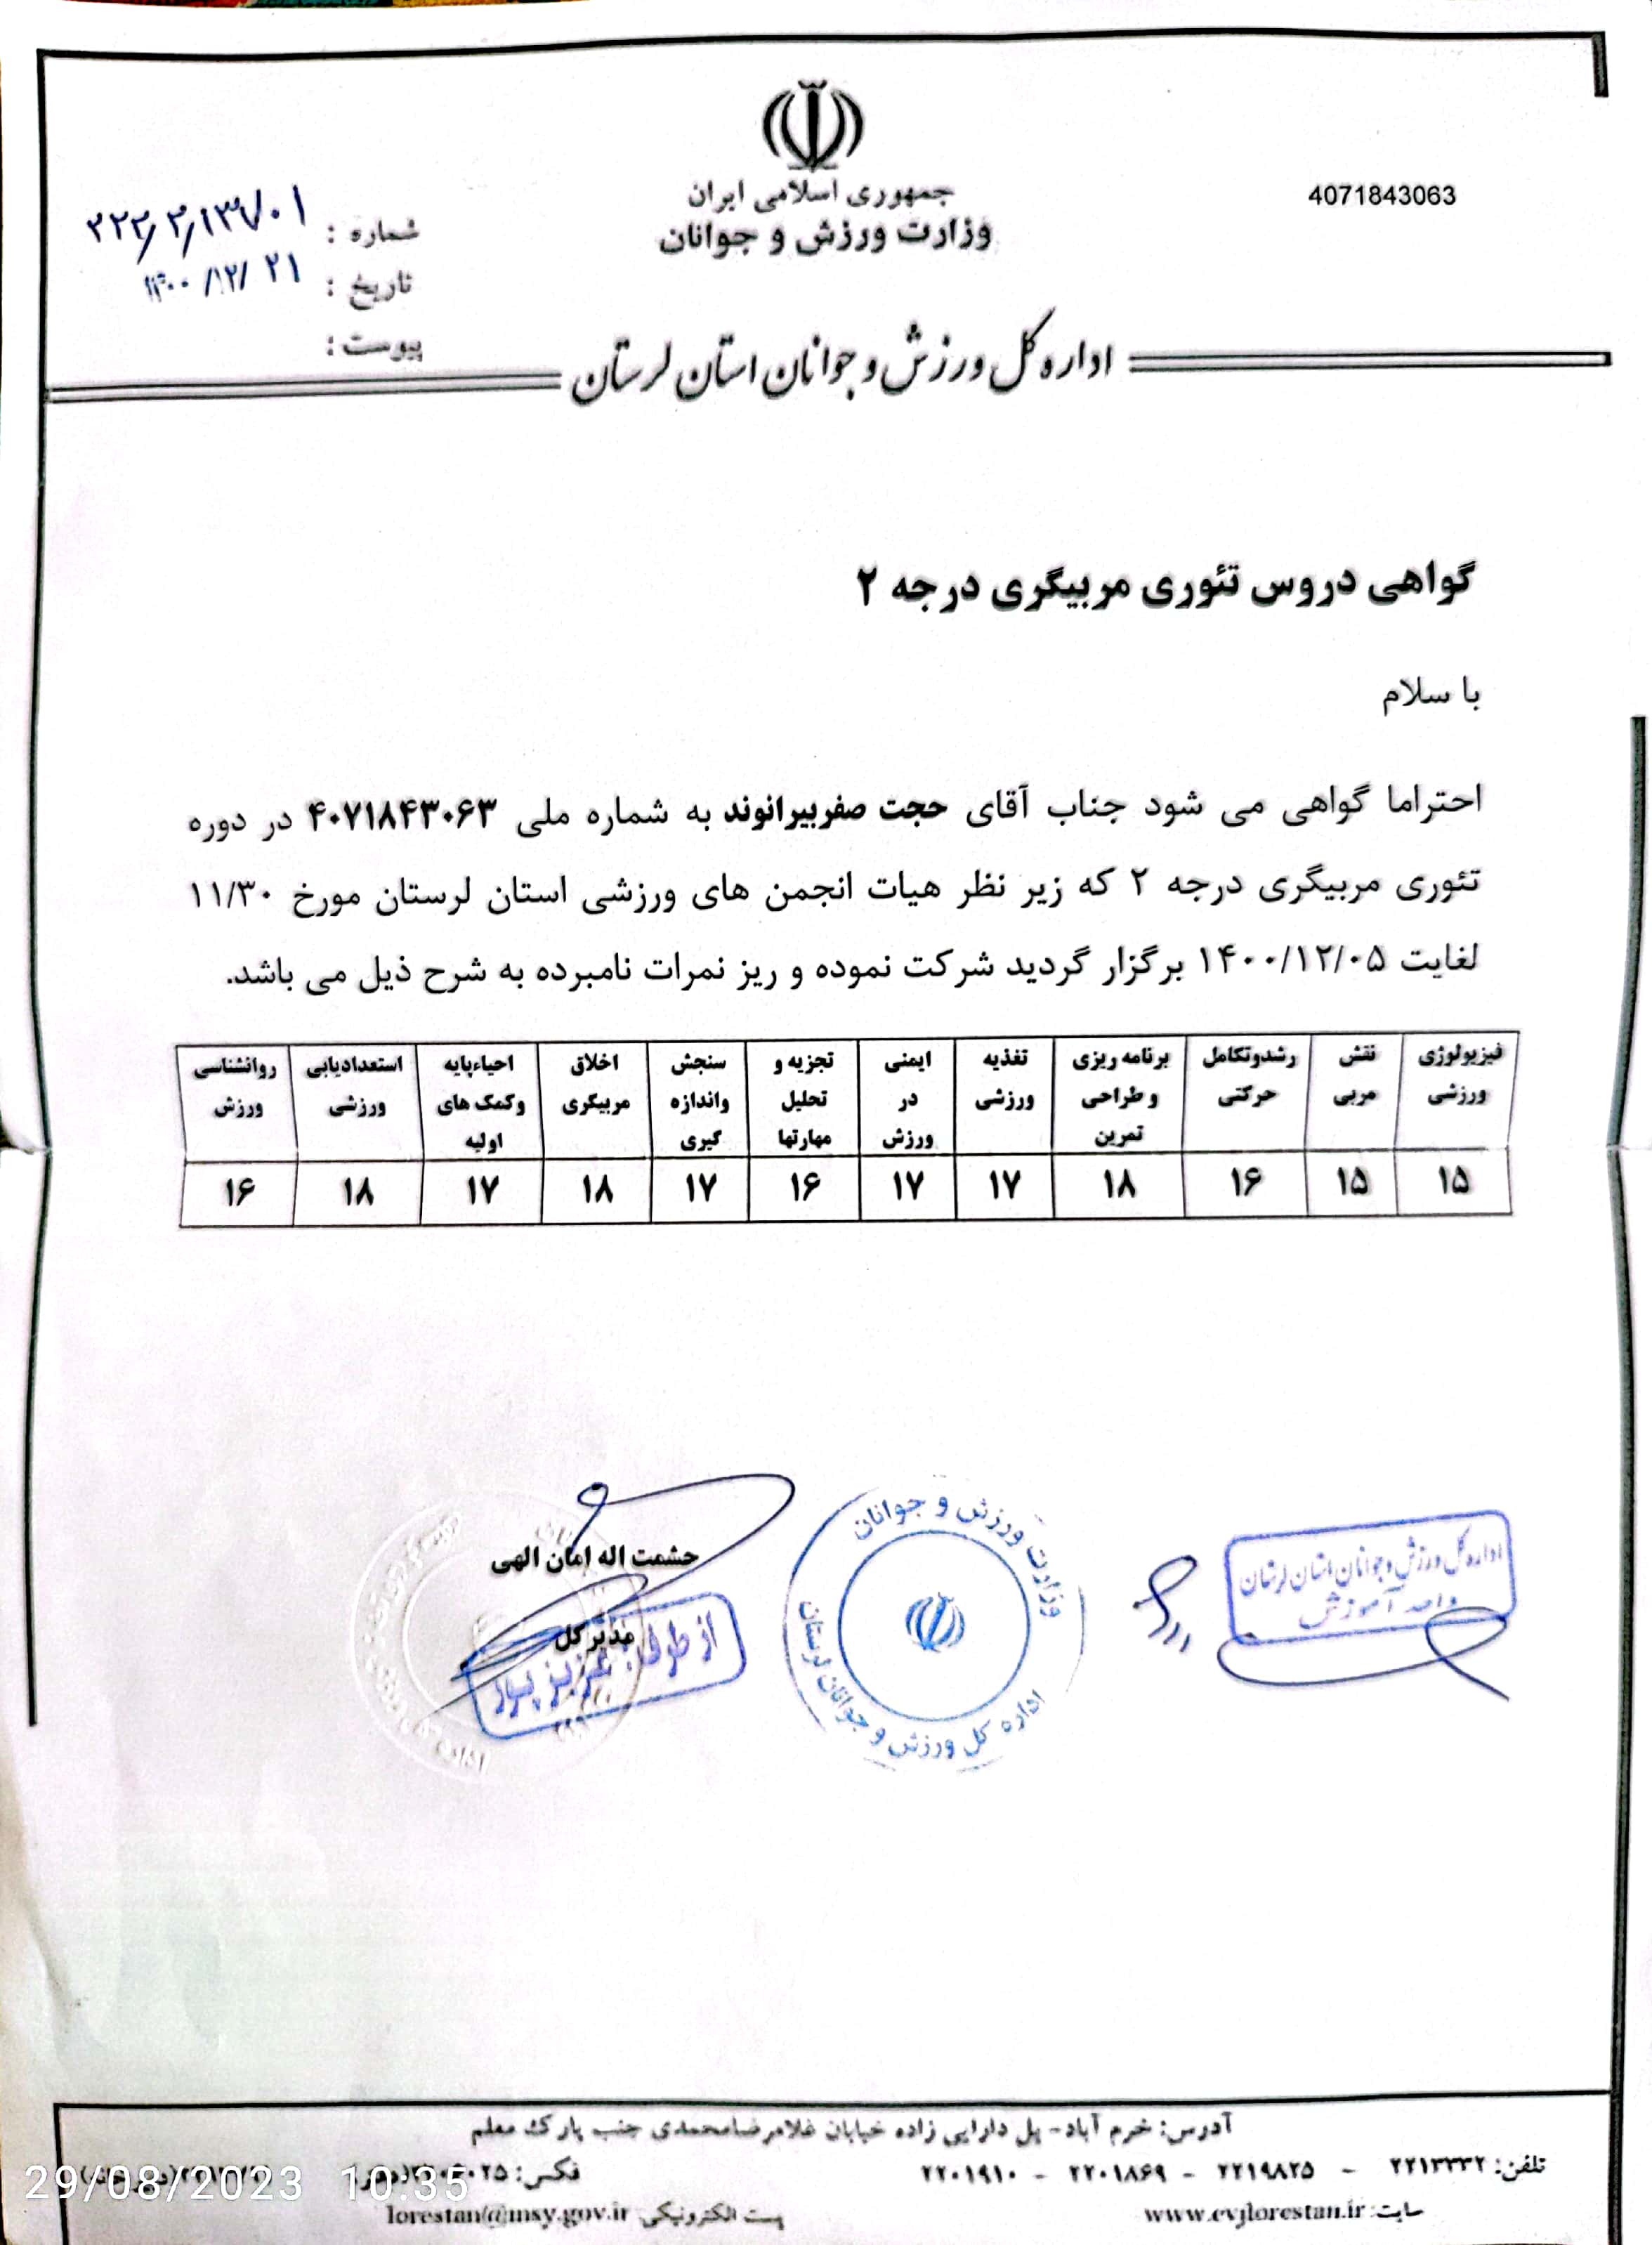 4071843063
جمهوری اسلامی ایران
وزارت ورزش و جوانان
شماره :
تاریخ : ۱۴۰۰/۱۲/۲۱
پیوست :
اداره کل ورزش و جوانان استان لرستان
گواهی دروس تئوری مربیگری درجه ۲
با سلام
احتراما گواهی می شود جناب آقای حجت صفربیرانوند به شماره ملی ۴۰۷۱۸۴۳۰۶۳ در دوره
تئوری مربیگری درجه ۲ که زیر نظر هیات انجمن های ورزشی استان لرستان مورخ ۱۱/۳۰
لغایت ۱۴۰۰/۱۲/۰۵ برگزار گردید شرکت نموده و ریز نمرات نامبرده به شرح ذیل می باشد.
فیزیولوژی نقش رشدوتکامل برنامه ریزی تغذیه ایمنی تجزیه و سنجش اخلاق احیاءپایه استعدادیابی روانشناسی
ورزشی مربی حرکتی و طراحی ورزشی در تحلیل واندازه مربیگری وکمک های ورزشی ورزش
تمرین ورزش مهارتها گیری اولیه
۱۵ ۱۵ ۱۶ ۱۸ ۱۷ ۱۷ ۱۶ ۱۷ ۱۸ ۱۷ ۱۸ ۱۶
اداره کل ورزش و جوانان استان لرستان
واحد آموزش
وزارت ورزش و جوانان
اداره کل ورزش و جوانان لرستان
حشمت اله امان الهی
مدیر کل
از طرف : عزیز پور
آدرس: خرم آباد- پل دارایی زاده خیابان غلامرضامحمدی جنب پارک معلم
تلفن: ۲۲۱۳۳۳۲ - ۲۲۱۹۸۲۵ - ۲۲۰۱۸۶۹ - ۲۲۰۱۹۱۰
فکس:
سایت: www.evjlorestan.ir
پست الکترونیکی: lorestan@msy.gov.ir
29/08/2023 10:35